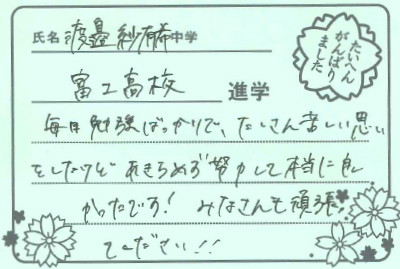 氏名 渡邉 紗有希 中学
たいへん
がんばり
ました
富士高校 進学
毎日勉強ばっかりで、たくさん苦しい思い
をしたけどあきらめず努力して本当に良
かったです! みなさんも頑張っ
てください!!